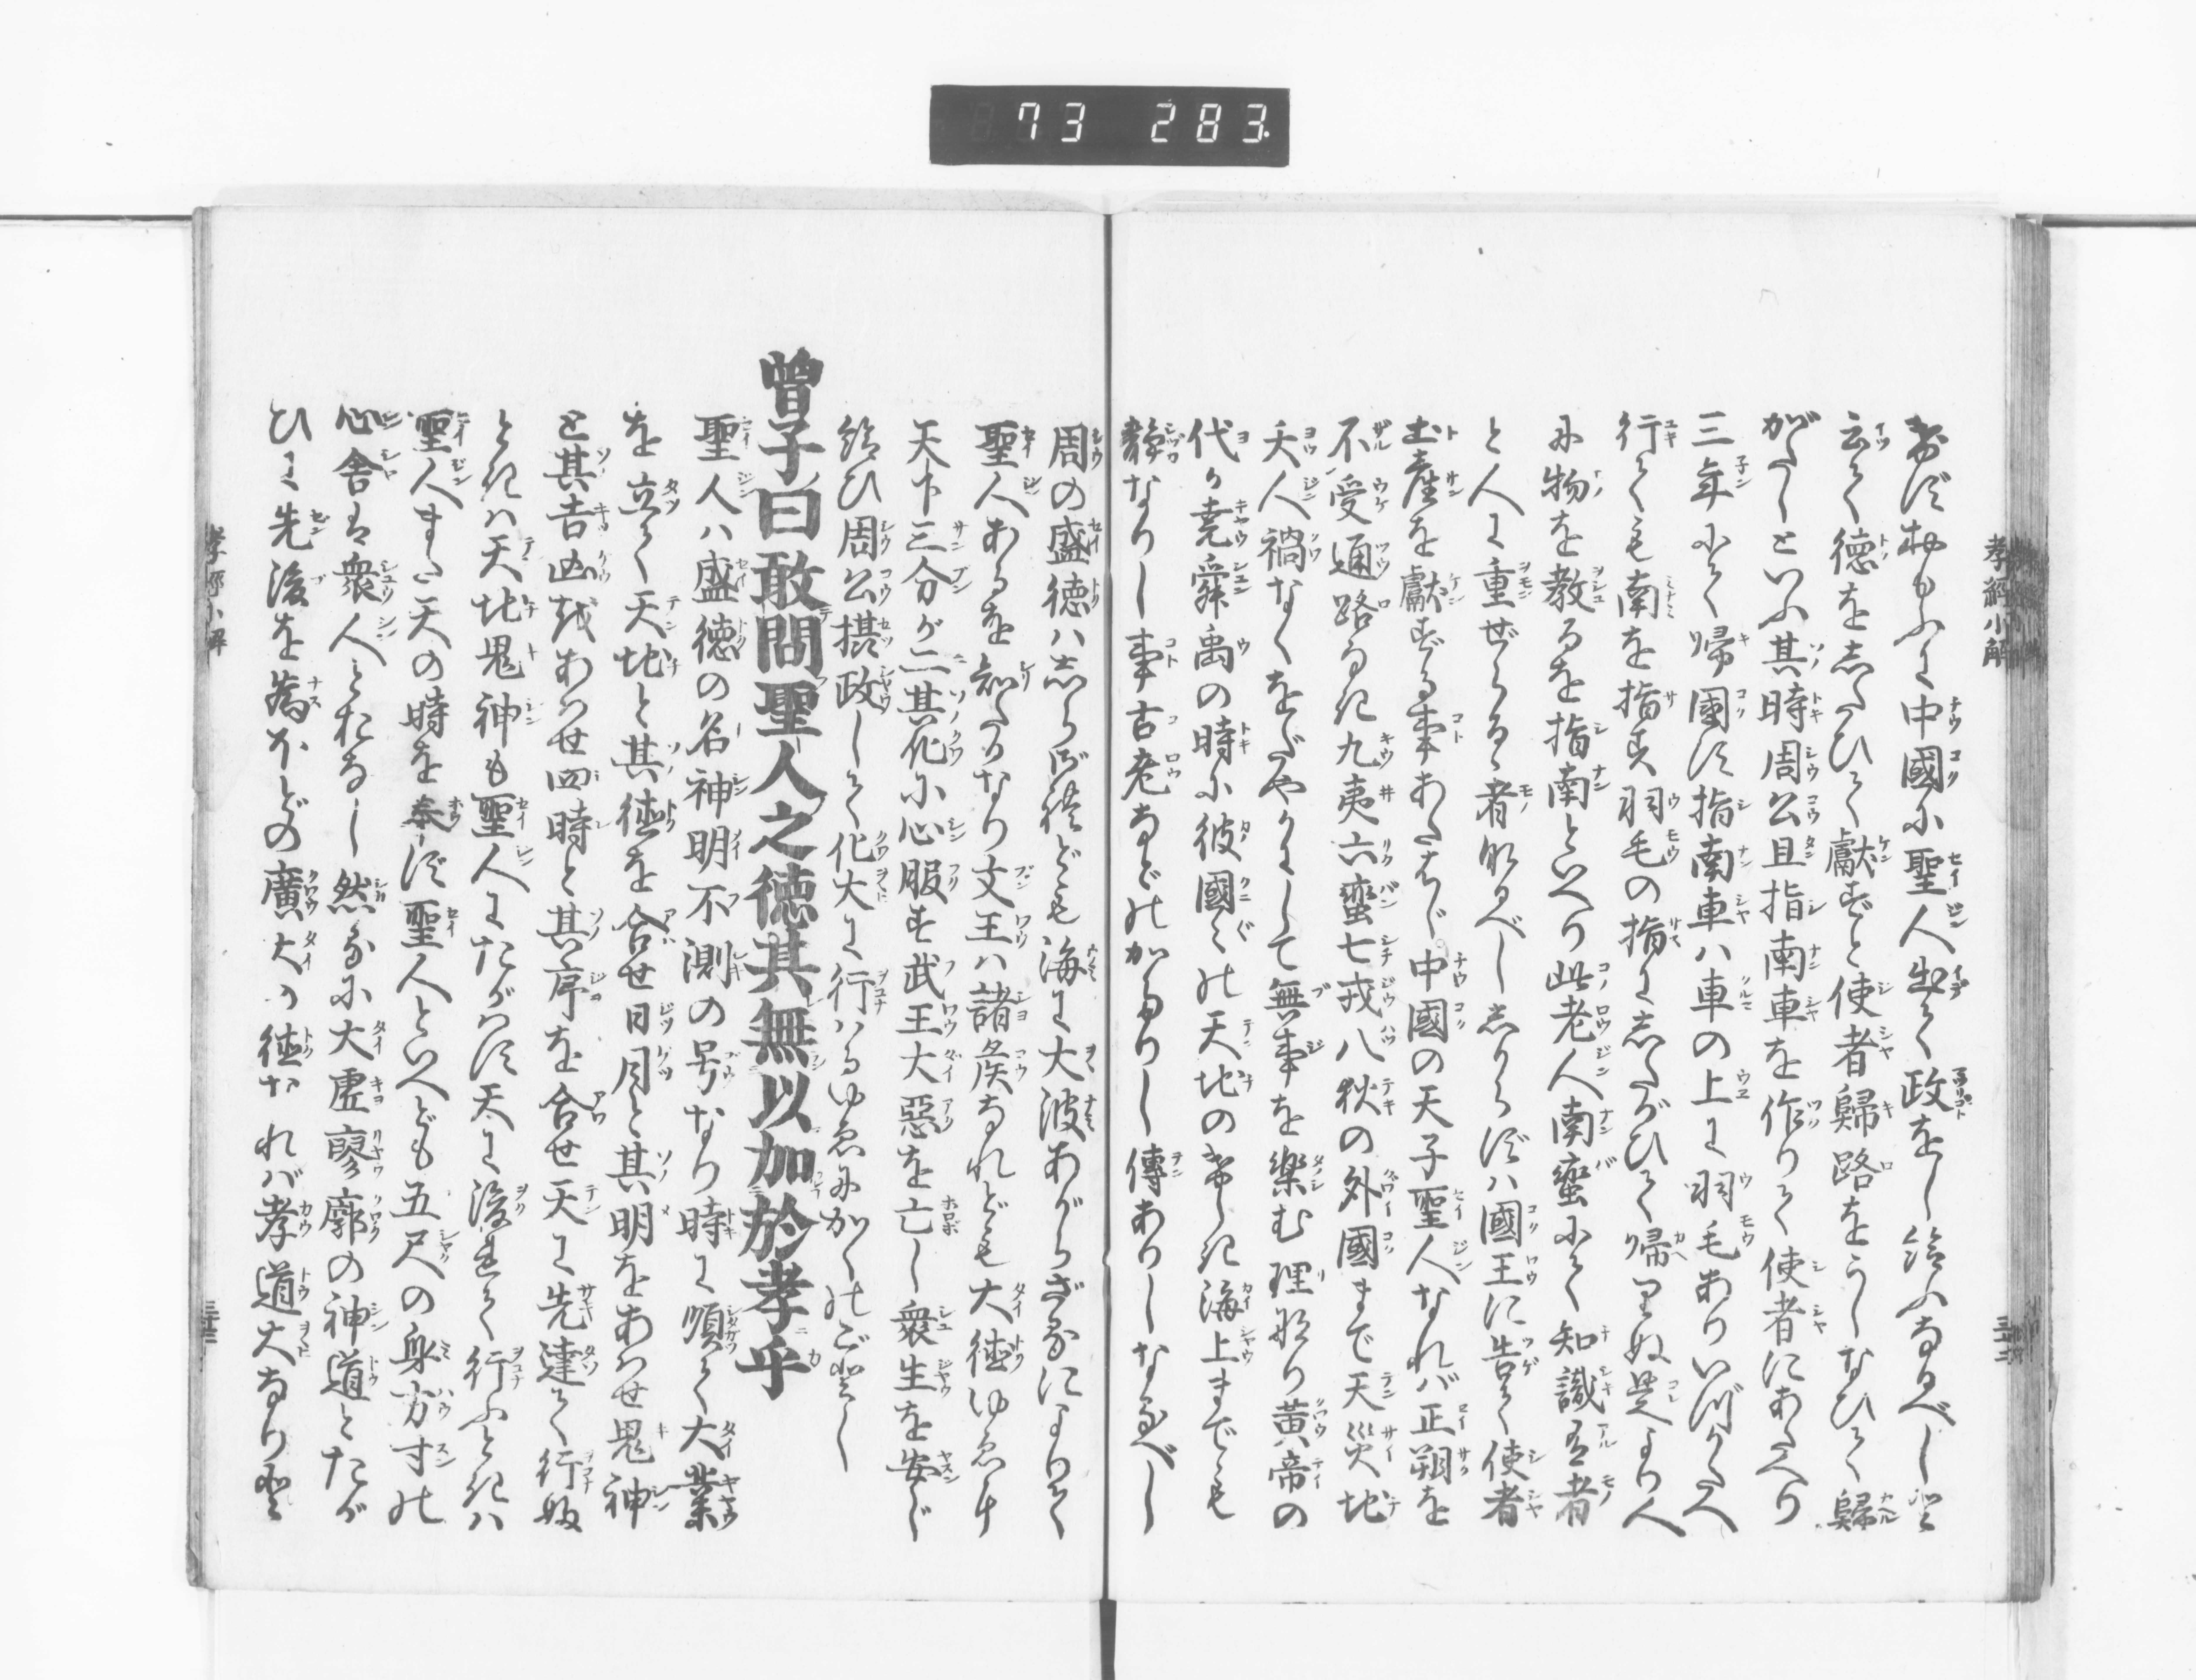 73 283.
孝經小解
おぼすおもふに中國に聖人出て政をし給ふなるべしと
云て徳をしたひて獻ずと使者歸路をうしなひて歸
がたしといふ其時周公旦指南車を作りて使者にあたへり
三年にて帰國す指南車ハ車の上に羽毛ありいづかたへ
行ても南を指す羽毛の指にしたがひて帰りぬ是より人
に物を教るを指南といへり此老人南蛮にて知識有者
と人に重ぜらるゝ者成べししからずハ國王に告て使者
土産を獻ずる事あたはじ中國の天子聖人なれバ正朔を
不受通路なき九夷六蛮七戎八狄の外國まで天災地
夭人禍なくをだやかにして無事を樂む理なり黄帝の
代か堯舜禹の時に彼國々の天地のけしき海上までも
靜なりし事古老などのかたりし傳ありしなるべし
周の盛徳ハしらざれども海に大波あがらざるによりて
聖人あるを知たるなり文王ハ諸侯なれども大徳ゆゑに
天下三分が二其化に心服す武王大惡を亡し衆生を安じ
給ひ周公摂政して化大に行ハるゆゑにかくのごとし
曾子曰敢問聖人之徳其無以加於孝乎
聖人ハ盛徳の名神明不測の号なり時に順て大業
を立て天地と其徳を合せ日月と其明をあハせ鬼神
と其吉凶をあハせ四時と其序を合せ天に先達て行ぬ
ときハ天地鬼神も聖人にたがハず天に後れて行ふときハ
聖人また天の時を奉ず聖人といへども五尺の身方寸の
心舎は衆人とおなし然るに大虚寥廓の神道とたが
ひに先後を為ほどの廣大の徳なれバ孝道大なりと
孝經小解